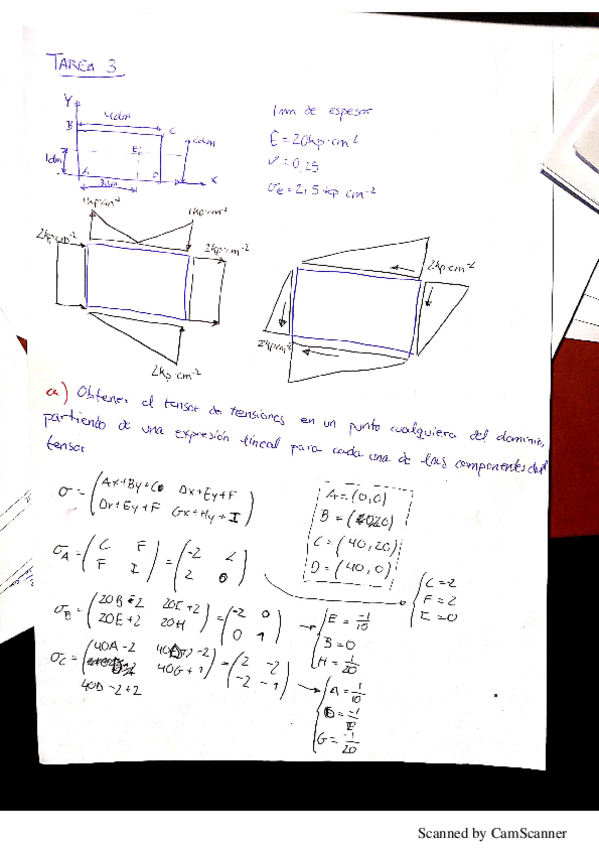 TAREA 3
Y
B
4dm
C
1dm
A
D
X
1mm de espesor
E = 20kp·cm⁻²
ν = 0,25
σe = 2,5 kp cm⁻²
1kp·cm⁻²
1kp·cm⁻²
2kp·cm⁻²
2kp·cm⁻²
2kp·cm⁻²
2kp·cm⁻²
2kp·cm⁻²
a) Obtener el tensor de tensiones en un punto cualquiera del dominio,
partiendo de una expresión lineal para cada una de las componentes del
tensor
σ = (Ax+By+C Dx+Ey+F
Dx+Ey+F Gx+Hy+I)
A = (0,0)
B = (0,20)
C = (40,20)
D = (40,0)
σA = (C F
F I) = (-2 2
2 0)
C = 2
F = 2
I = 0
σB = (20B-2 20E+2
20E+2 20H) = (-2 0
0 1)
E = -1/10
B = 0
H = 1/20
σC = (40A-2
40G+1) = (2 -2
-2 -1)
40D-2+2
A = 1/10
G = -1/20
Scanned by CamScanner